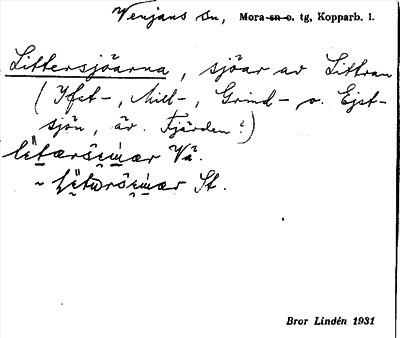 Venjans sn, Mora sn o. tg, Kopparb. l.
Littersjöarna, sjöar av Littran
(Yfst-, Mill-, Grind- o. Ejst-
sjön, äv. Fjärden?)
Vå.
~ St.
Bror Lindén 1931